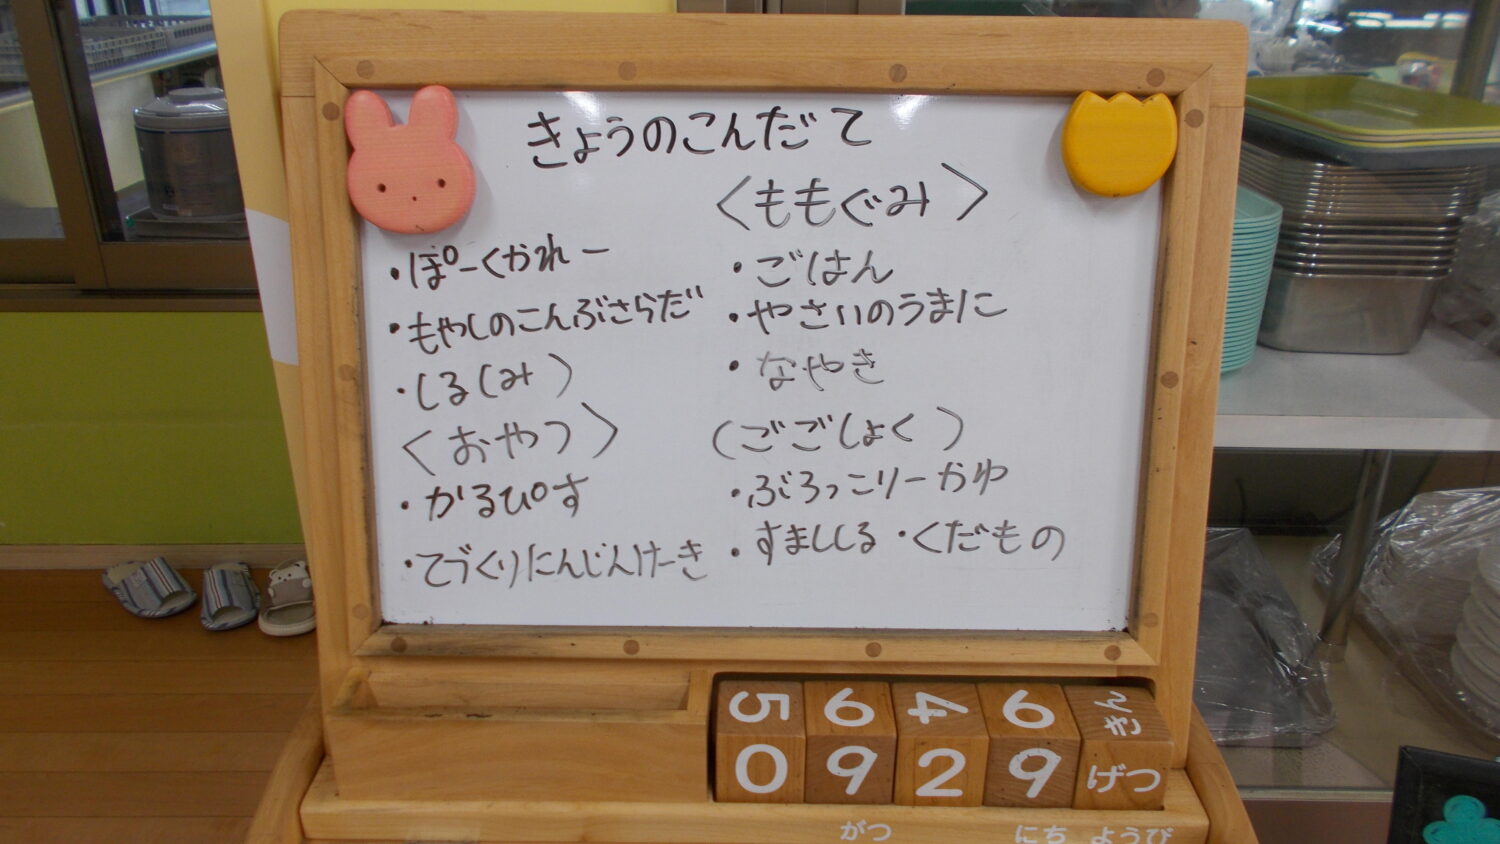 きょうのこんだて
・ぽーくかれー
・もやしのこんぶさらだ
・しるしみ)
〈おやつ〉
・かるぴす
・てづくりにんじんけーき
〈ももぐみ〉
・ごはん
・やさいのうまに
・なやき
(ごごしょく)
・ぶろっこりーかゆ
・すまししる・くだもの
5 6 4 6 きん
0 9 2 9 げつ
がつ にち ようび